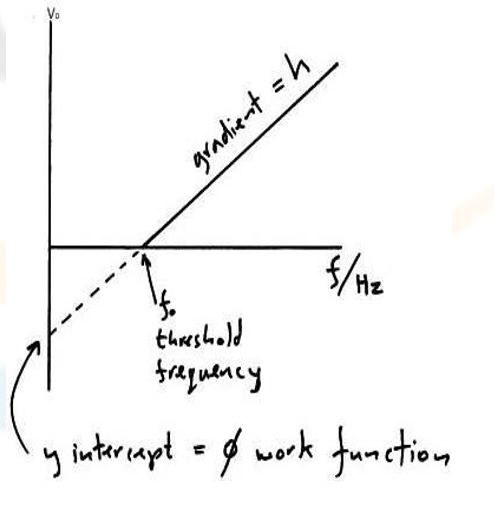 V₀
gradient = h
f/Hz
f₀
threshold
frequency
y intercept = φ work function